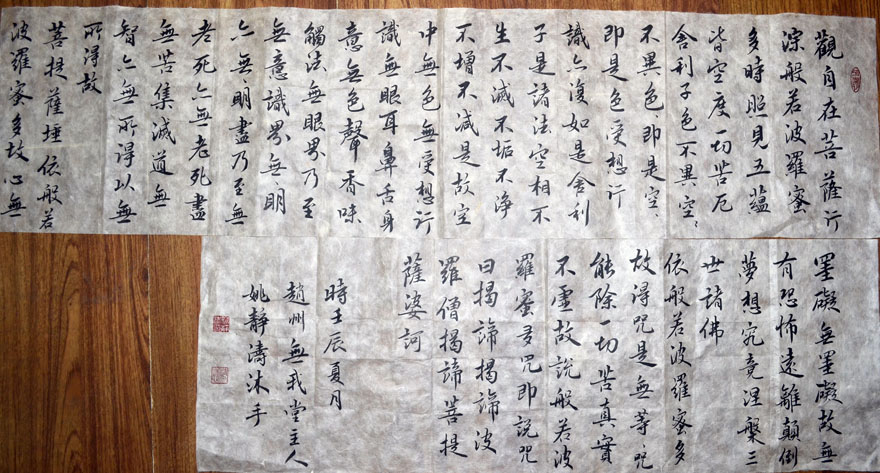 觀自在菩薩行
深般若波羅蜜
多時照見五蘊
皆空度一切苦厄
舍利子色不異空〻
不異色〻即是空〻
即是色受想行
識亦復如是舍利
子是諸法空相不
生不滅不垢不淨
不增不減是故空
中無色無受想行
識無眼耳鼻舌身
意無色聲香味
觸法無眼界乃至
無意識界無〻明
亦無明盡乃至無
老死亦無老死盡
無苦集滅道無
智亦無所得以無
所得故
菩提薩埵依般若
波羅蜜多故心無
罣礙無罣礙故無
有恐怖遠離顛倒
夢想究竟涅槃三
世諸佛
依般若波羅蜜多
故得咒是無等〻咒
能除一切苦真實
不虛故說般若波
羅蜜多咒即說咒
曰揭諦揭諦波
羅僧揭諦菩提
薩婆訶
時壬辰夏月
趙州無我堂主人
姚靜濤沐手